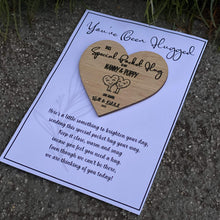 You've Been Hugged
A
Special Pocket Hug
from
NANNY & POPPY
Here's a little something to brighten your day,
sending this special pocket hug your way.
Keep it close, warm and snug
incase you feel you need a hug.
Even though we can't be there,
we are thinking of you today!